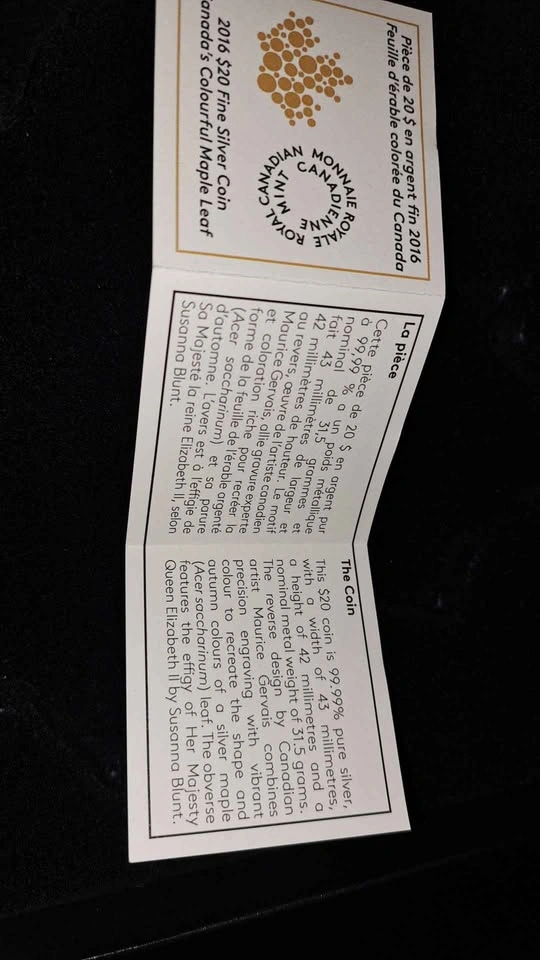 Pièce de 20 $ en argent fin 2016
Feuille d'érable colorée du Canada
MONNAIE ROYALE CANADIENNE
ROYAL CANADIAN MINT
2016 $20 Fine Silver Coin
anada's Colourful Maple Leaf
La pièce
Cette pièce de 20 $ en argent pur
à 99,99 % a un poids métallique
nominal de 31,5 grammes et
fait 43 millimètres de largeur et
42 millimètres de hauteur. Le motif
au revers, œuvre de l'artiste canadien
Maurice Gervais, allie gravure experte
et coloration riche pour recréer la
forme de la feuille de l'érable argenté
(Acer saccharinum) et sa parure
d'automne. L'avers est à l'effigie de
Sa Majesté la reine Elizabeth II, selon
Susanna Blunt.
The Coin
This $20 coin is 99.99% pure silver,
with a width of 43 millimetres,
a height of 42 millimetres and a
nominal metal weight of 31.5 grams.
The reverse design by Canadian
artist Maurice Gervais combines
precision engraving with vibrant
colour to recreate the shape and
autumn colours of a silver maple
(Acer saccharinum) leaf. The obverse
features the effigy of Her Majesty
Queen Elizabeth II by Susanna Blunt.